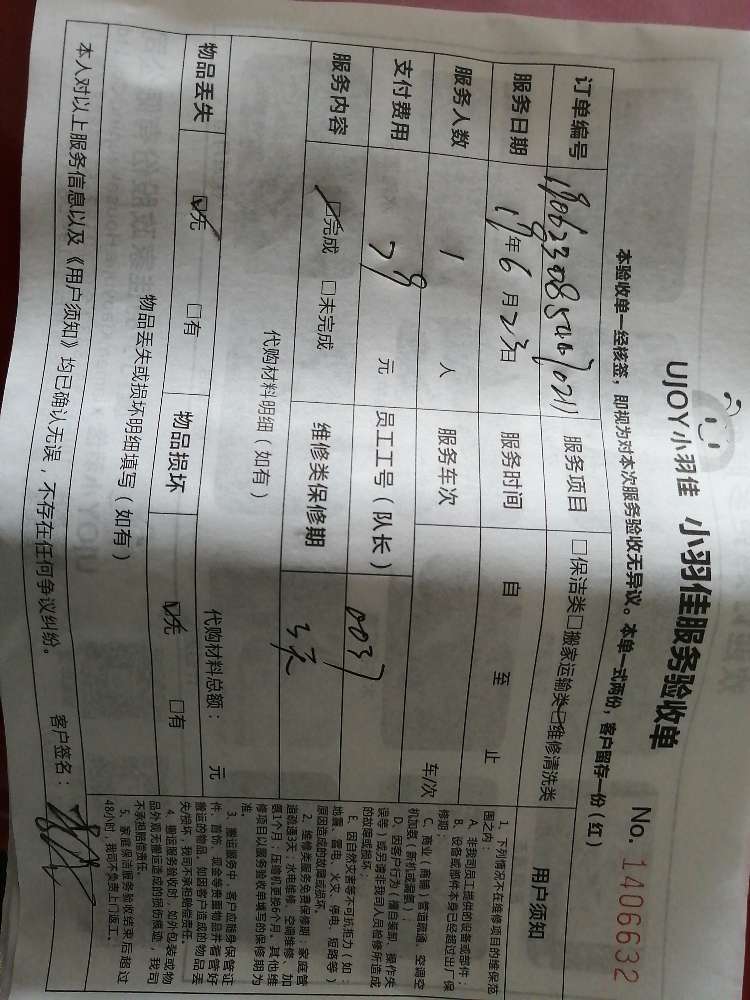 UJOY小羽佳 小羽佳服务验收单
No. 1406632
本验收单一经核签，即视为对本次服务验收无异议。本单一式两份，客户留存一份（红）
订单编号
服务项目 □保洁类□搬家运输类☑维修清洗类
服务日期 19年6月23日 服务时间 自 至 止
服务人数 1 人 服务车次 车/次
支付费用 79 元 员工工号（队长） 0037
服务内容 ☑完成 □未完成 维修类保修期 3天
代购材料明细（如有）
代购材料总额： 元
物品丢失 ☑无 □有 物品损坏 ☑无 □有
物品丢失或损坏明细填写（如有）
本人对以上服务信息以及《用户须知》均已确认无误，不存在任何争议纠纷。
客户签名：
用户须知
1、下列情况不在维修项目的维保范
围之内：
A、非我司员工提供的设备或部件；
B、设备或部件本身已经超过出厂保
修期；
C、商业（商铺）管道疏通，空调空
机加氨（新机或漏氨）；
D、因客户行为（擅自装卸、操作失
误等）或另请非我司人员检修所造成
的故障或损坏；
E、因自然灾害等不可抗拒力（如：
地震、雷电、火灾、停电、短路等）
原因造成的故障或损坏。
2、维修类服务免费保修期：家庭管
道疏通3天；水电维修、空调维修、加
氨1个月；压缩机更换6个月。其他维
修项目以服务验收单填写的保修期为
准。
3、搬运服务中，客户应随身保管证
件、首饰、现金等贵重物品并看管好
搬运的物品，如因客户造成的物品丢
失/损坏，我司不承担赔偿责任。
4、搬运服务验收时，如外包装或物
品外观无搬运造成的损伤痕迹，我司
不承担赔偿责任。
5、家庭保洁服务验收结束后超过
48小时，我司不负责上门返工。